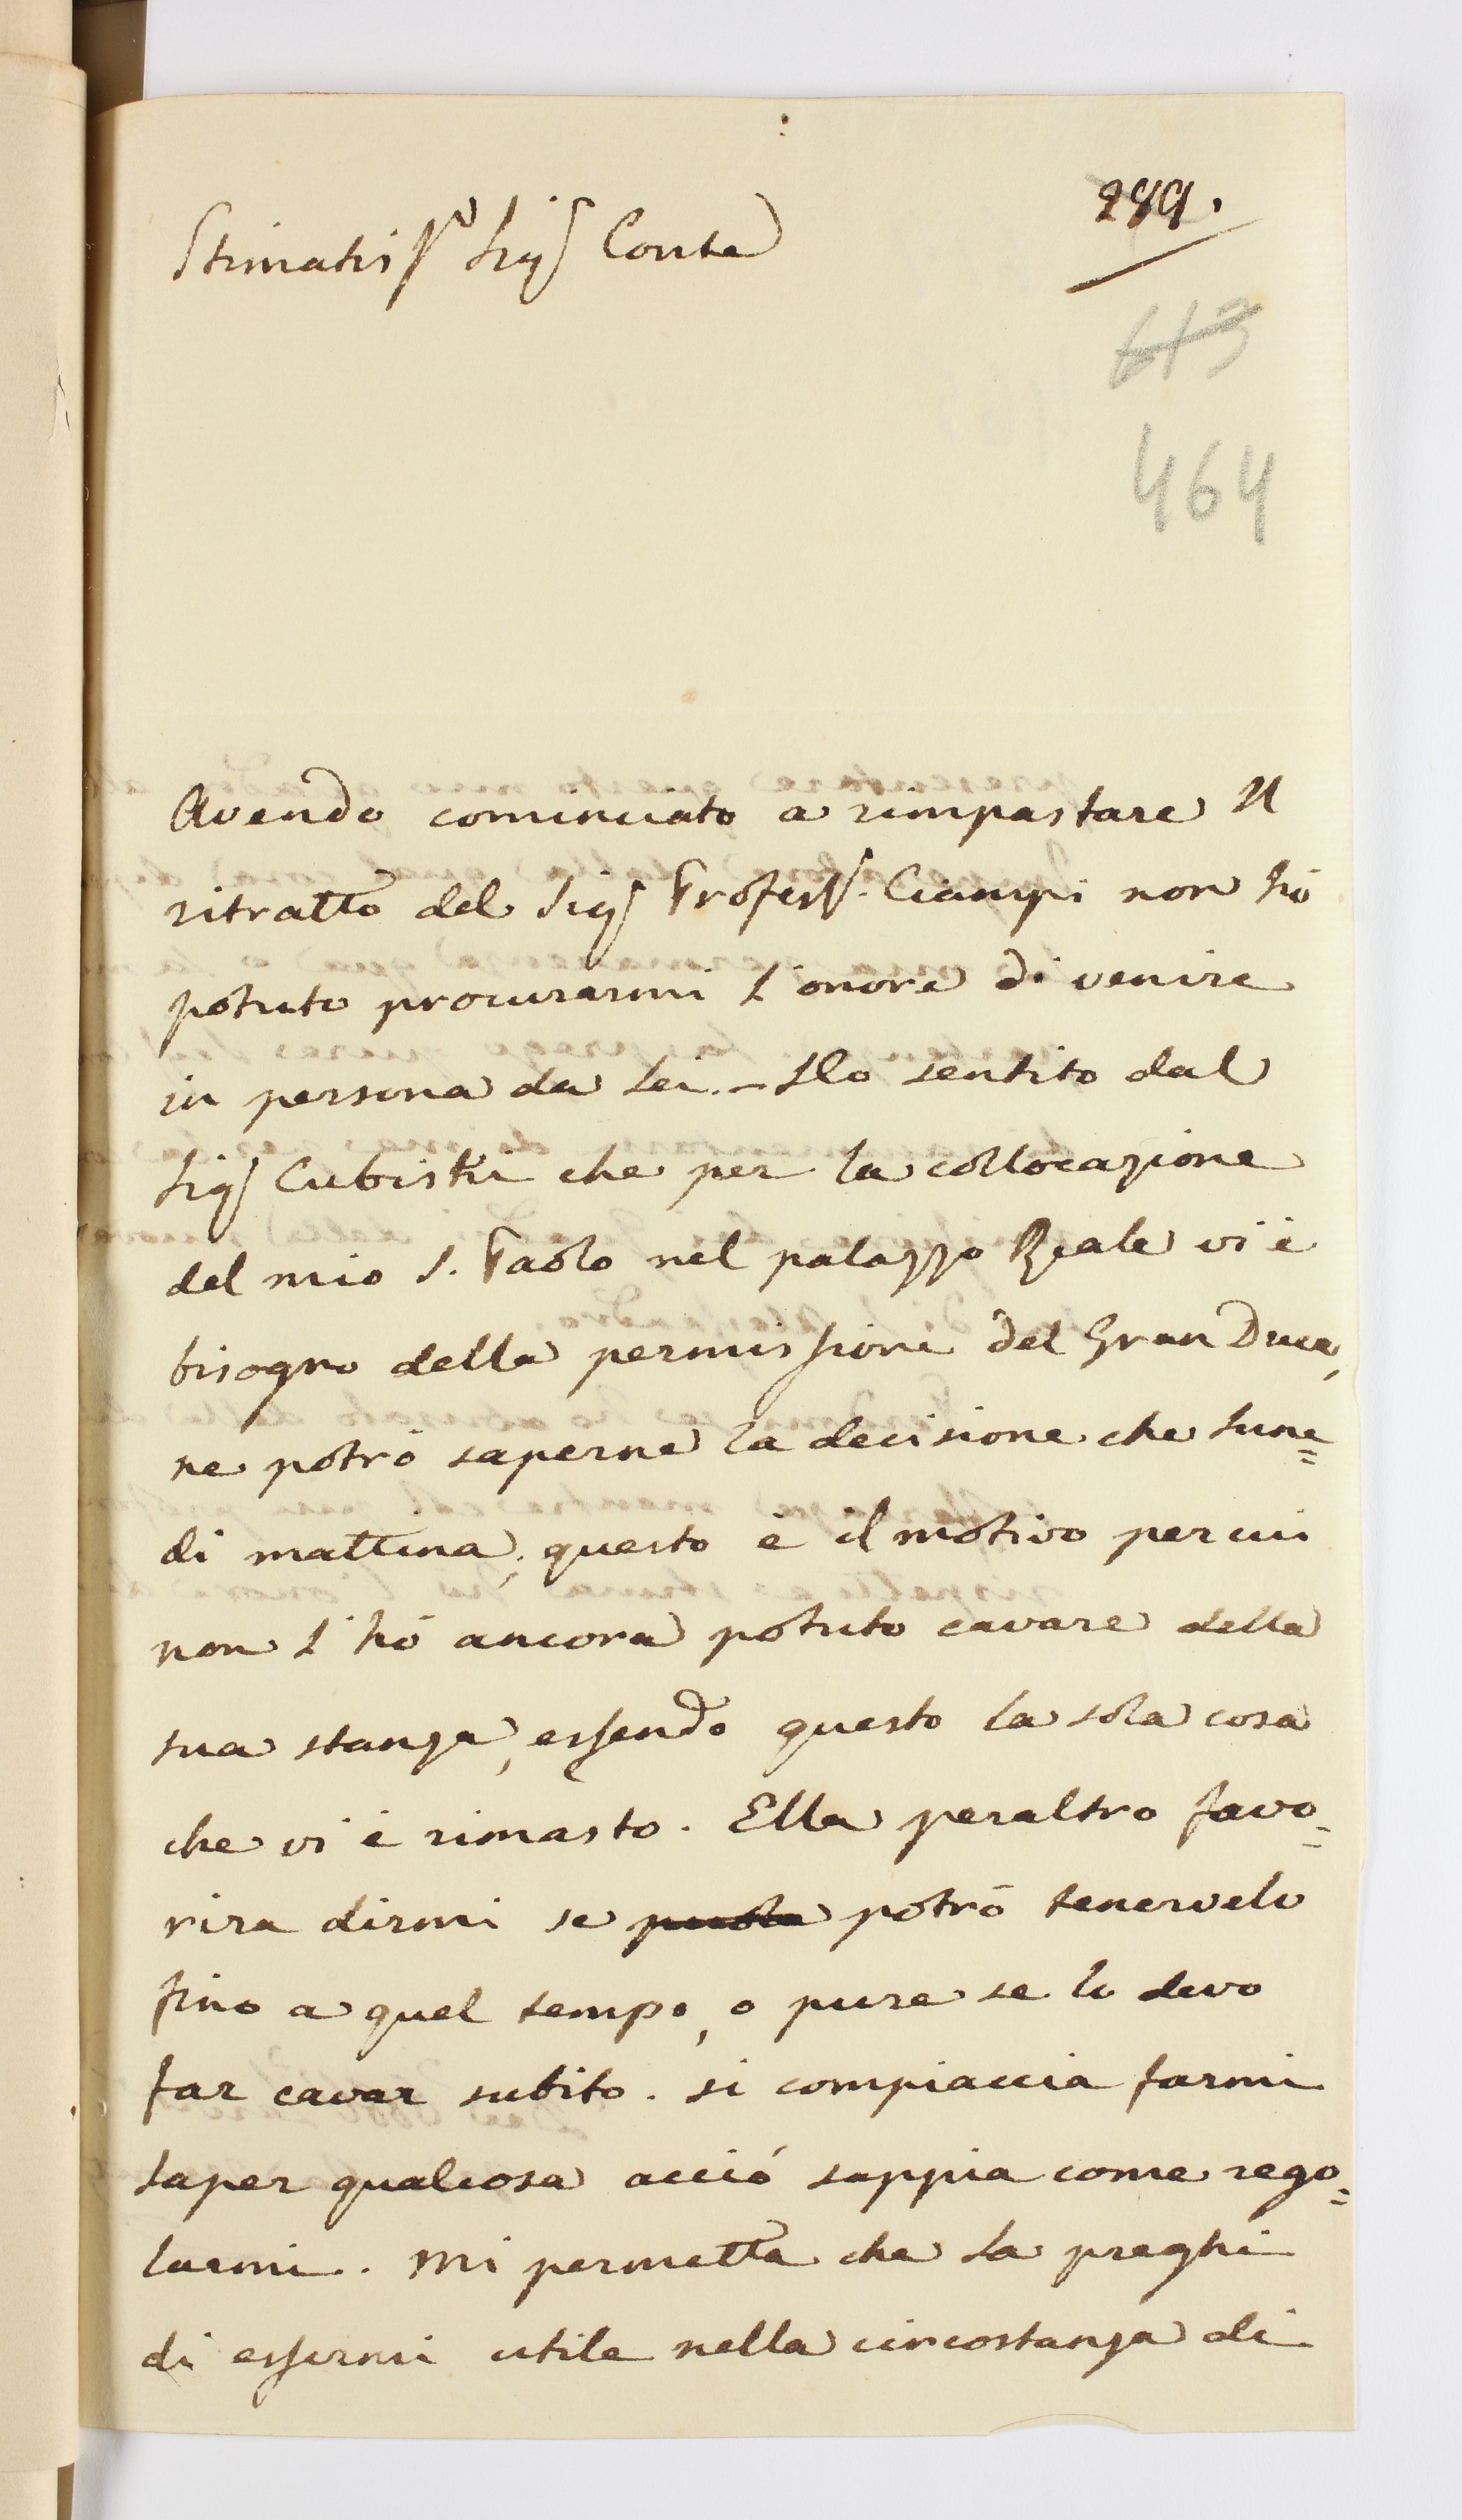 299.
Stimatisso Sigr Conte
613
464
Avendo cominciato a rimpastare Il
ritratto del Sigr Profess. Ciampi non hò
potuto procurarmi l'onore di venire
in persona da Lei. – Ho sentito dal
Sigr Cubiski che per la collocazione
del mio S. Paolo nel palazzo Reale vi è
bisogno della permissione del Gran Duca,
ne potrò saperne la decisione che lune=
di mattina; questo è il motivo per cui
non l'hò ancora potuto cavare della
sua stanza, essendo questo la sola cosa
che vi è rimasto. Ella peraltro favo=
rira dirmi se potrò tenervelo
fino a quel tempo, o pure se lo devo
far cavar subito. si compiaccia farmi
saper qualcosa acciò sappia come rego=
larmi. Mi permetta che La preghi
di essermi utile nella circostanza di